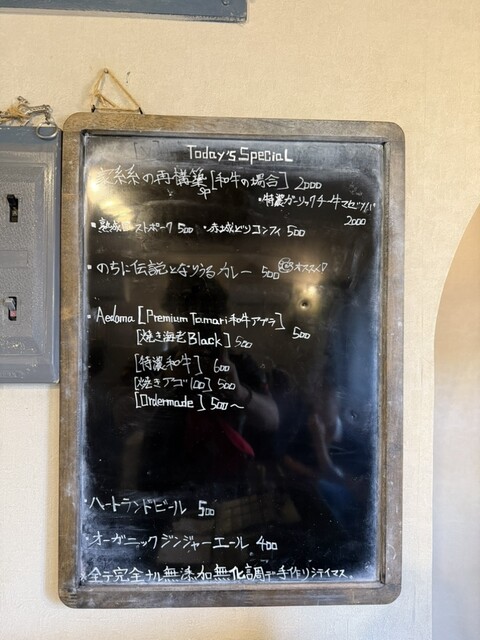 Today's Special
家系の再構築[和牛の場合] 2000
・特濃ガーリックチー牛マゼソバ
2000
・熟成ローストポーク 500 ・赤城どりコンフィ 500
・のちに伝説となりうるカレー 500 オススメ
・Aedama [Premium Tamari和牛アブラ]
500
[焼き海老Black] 500
[特濃和牛] 600
[焼きアゴ100] 500
[Ordermade] 500〜
・ハートランドビール 500
・オーガニックジンジャーエール 400
全テ完全ナル無添加無化調デ手作リシテイマス.